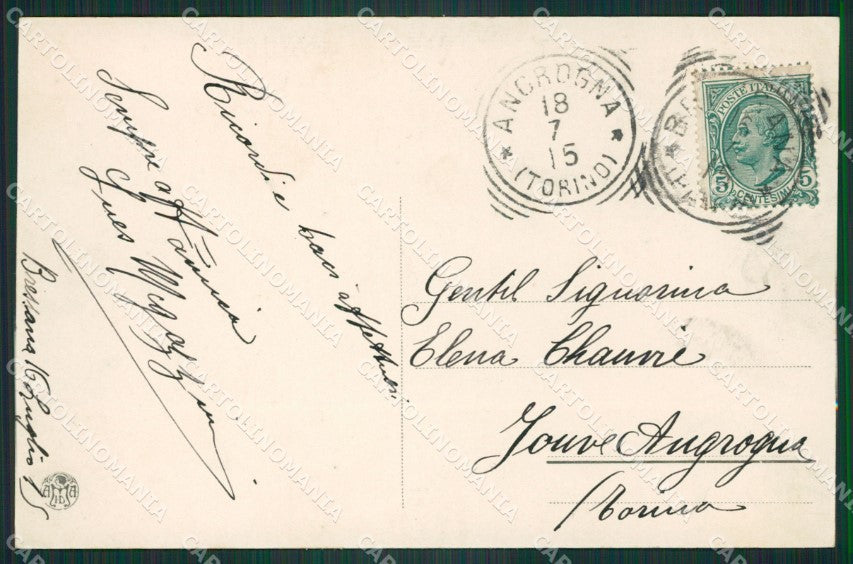 Ricordi e baci affettuosi
Sempre aff. amica
Ines
Bressana 16 Luglio 15
ANGROGNA
18
7
15
(TORINO)
POSTE ITALIANE
5 5
CENTESIMI
Gentil Signorina
Elena Chauvie
Jouve Angrogna
Torino
CARTOLINOMANIA